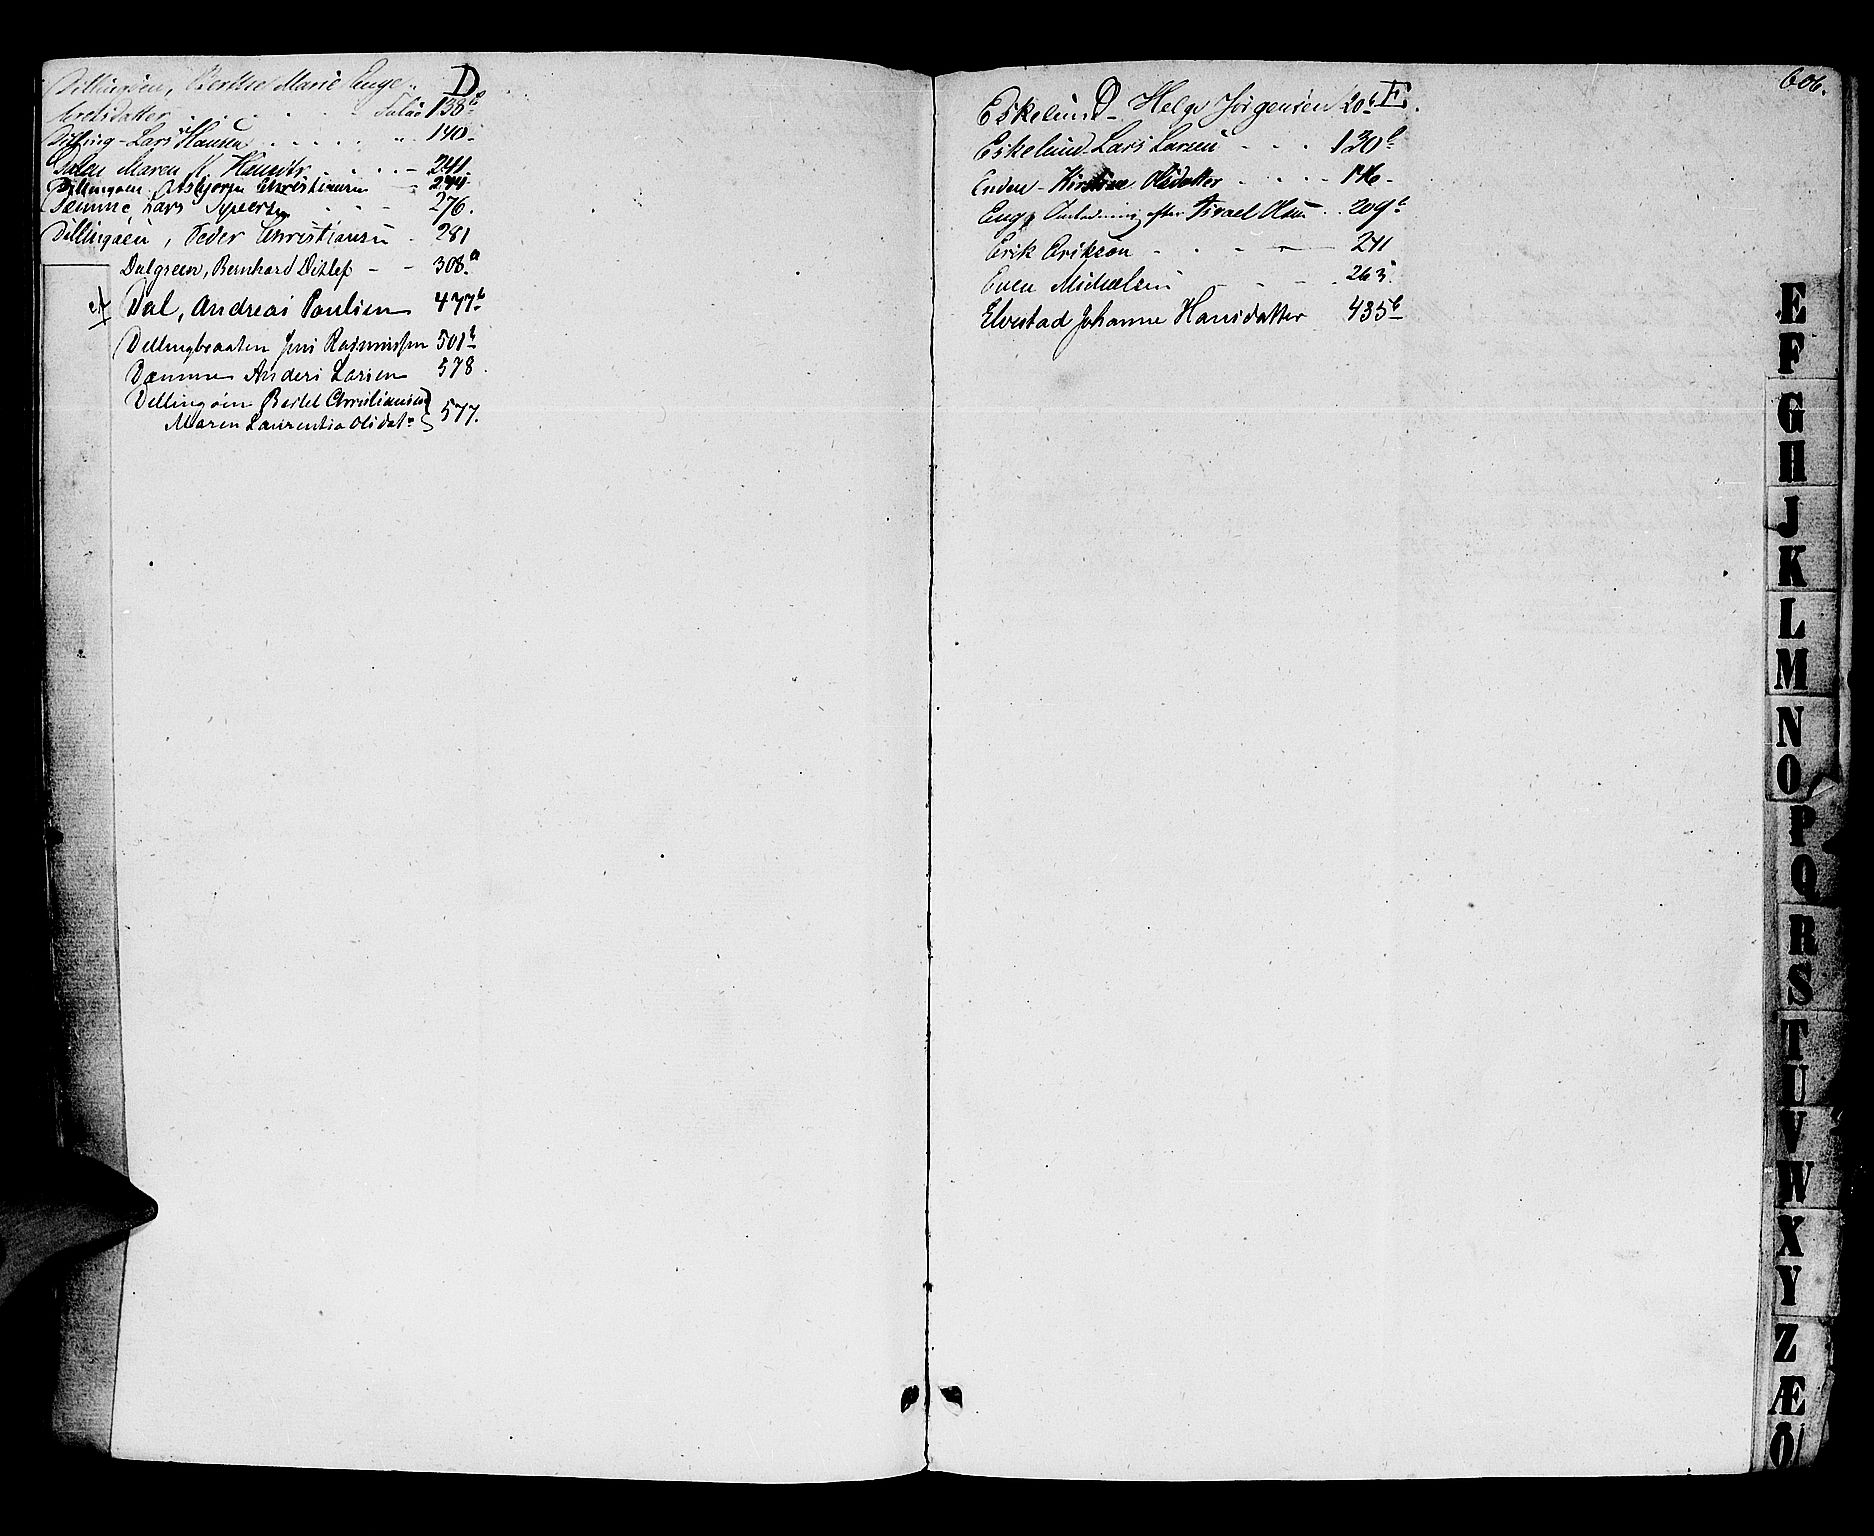 D
Dillingöen, Berthe Marie Enge
Arvesdatter . . . . . . 138b
Dilling - Lars Hansen . . . . . 140
Dalen Maren H. Hansdtr. . . . 241
Dillingöen Asbjørn Christiansen 244
Dæmme, Lars Syversen - - - 276.
Dillingöen, Peder Christiansen . 281
Dalgreen, Bernhard Ditlef - - 308.a
Dal, Andreas Paulsen 477b
Dillingbraaten Jens Rasmussen 501b
Dæmme Anders Larsen 578
Dillingöen Bertel Christiansen
Maren Laurentia Olsdatr } 577.
606.
E.
Eskelund - Helge Jörgensen 20b
Eskelund Lars Larsen - - - 130b
Enden - Kirstine Olsdatter - - - - 176 -
Enge efter Israel Olsen . . 209b
Erik Eriksön - - - - 241
Even Michelsen - - - 263.
Elvestad Johanne Hansdatter 435b
E
F
G
H
J
K
L
M
N
O
P
Q
R
S
T
U
V
W
X
Y
Z
Æ
Ö